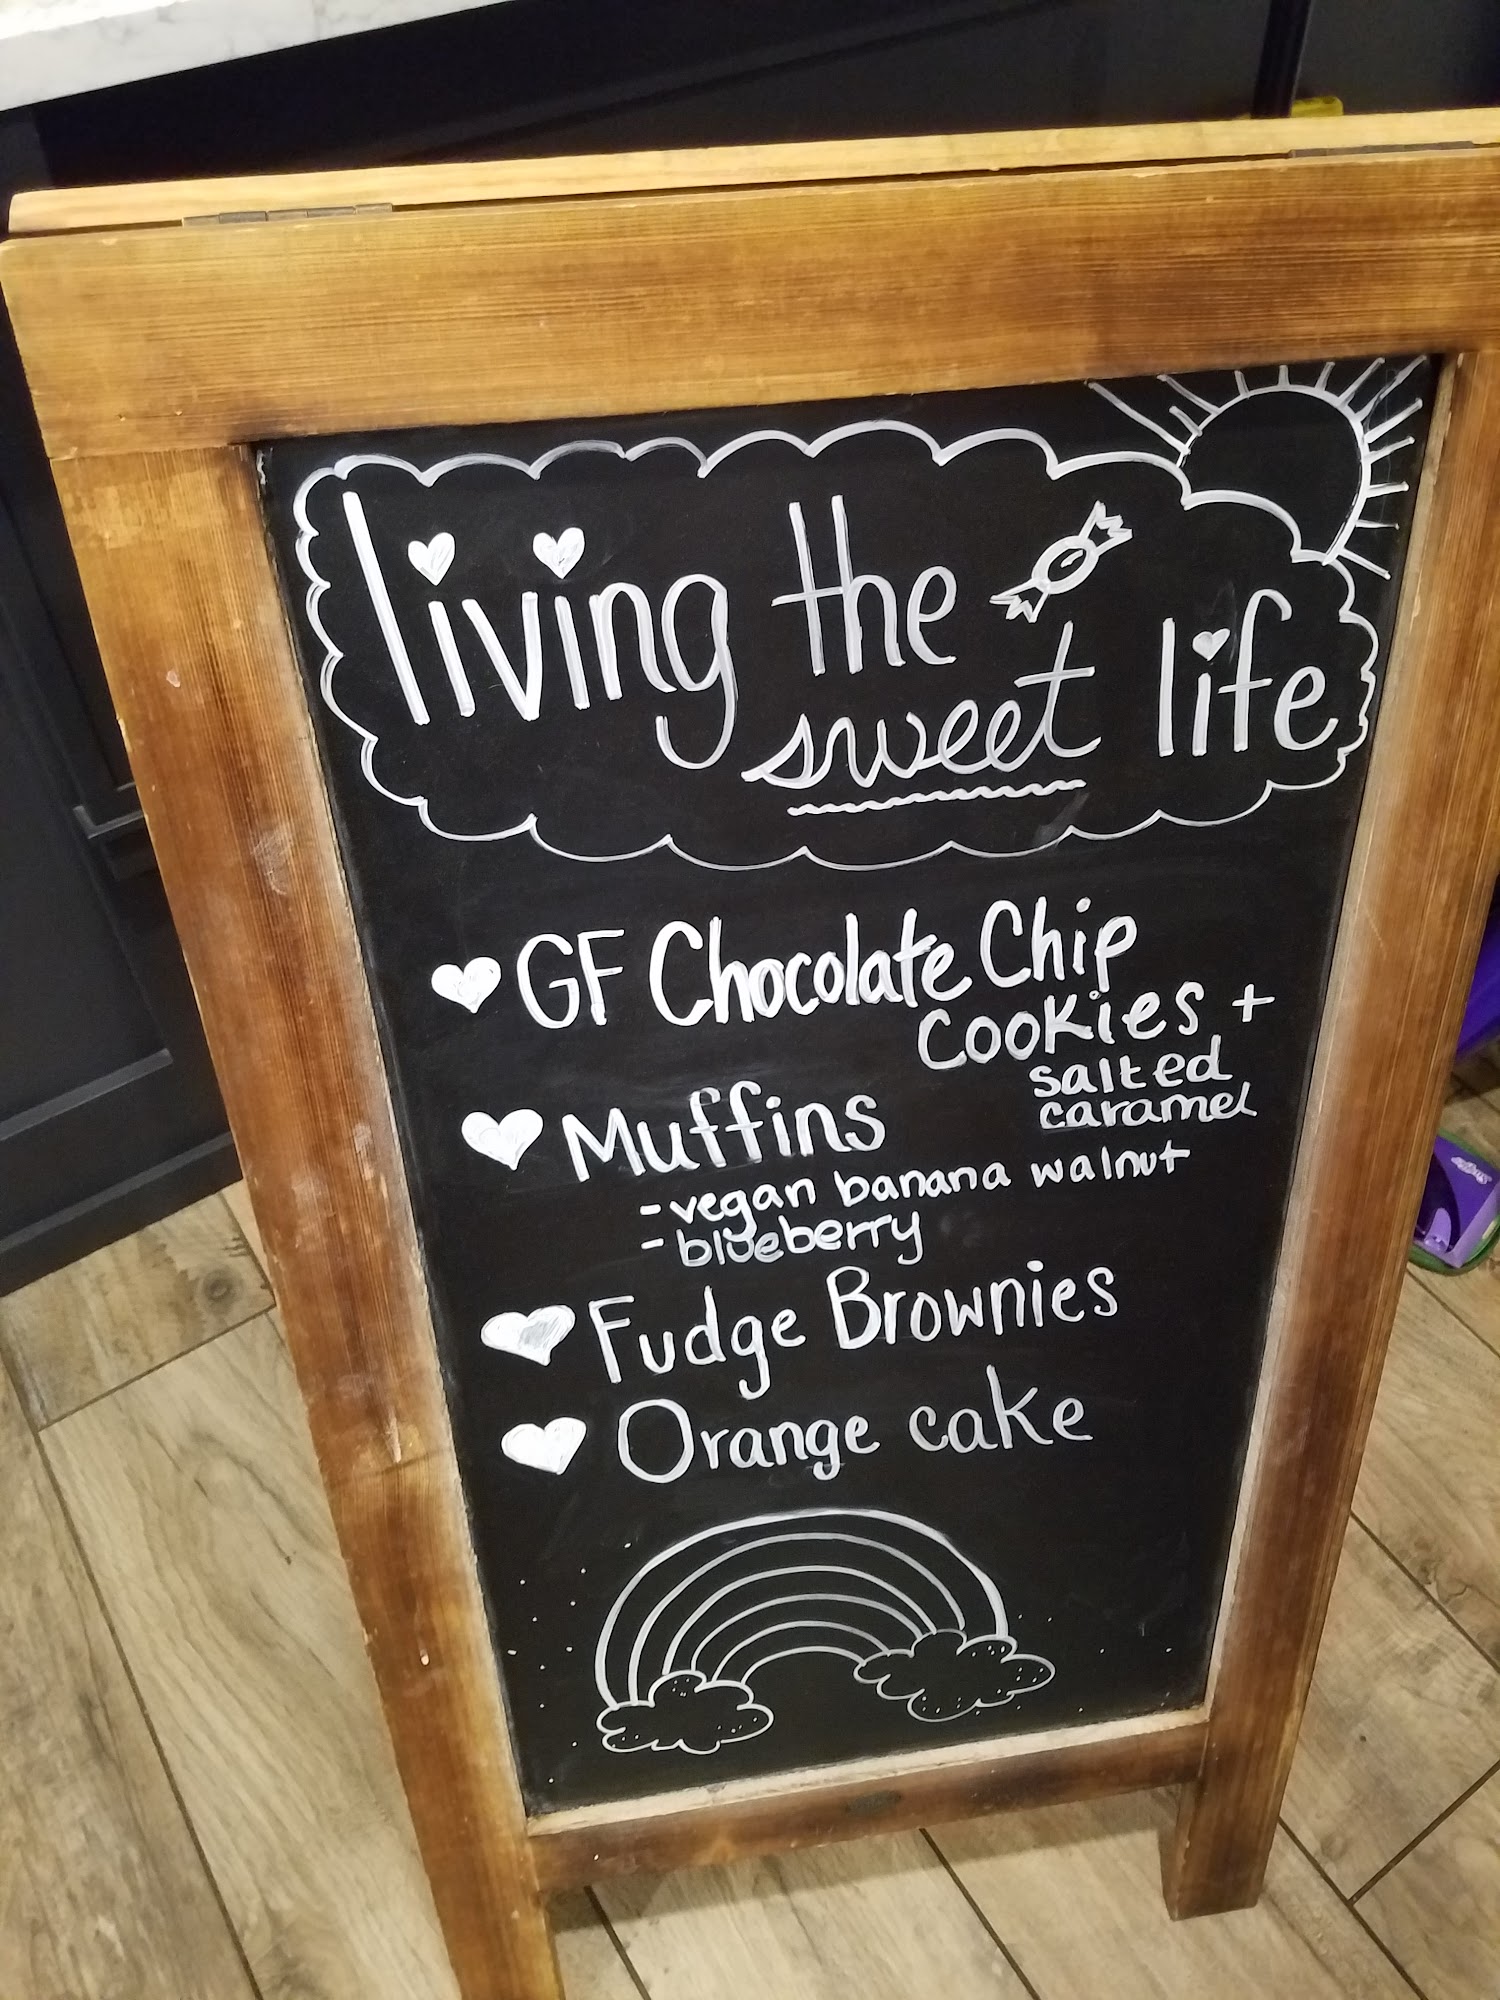 living the sweet life
GF Chocolate Chip
Cookies +
salted
caramel
Muffins
- vegan banana walnut
- blueberry
Fudge Brownies
Orange cake